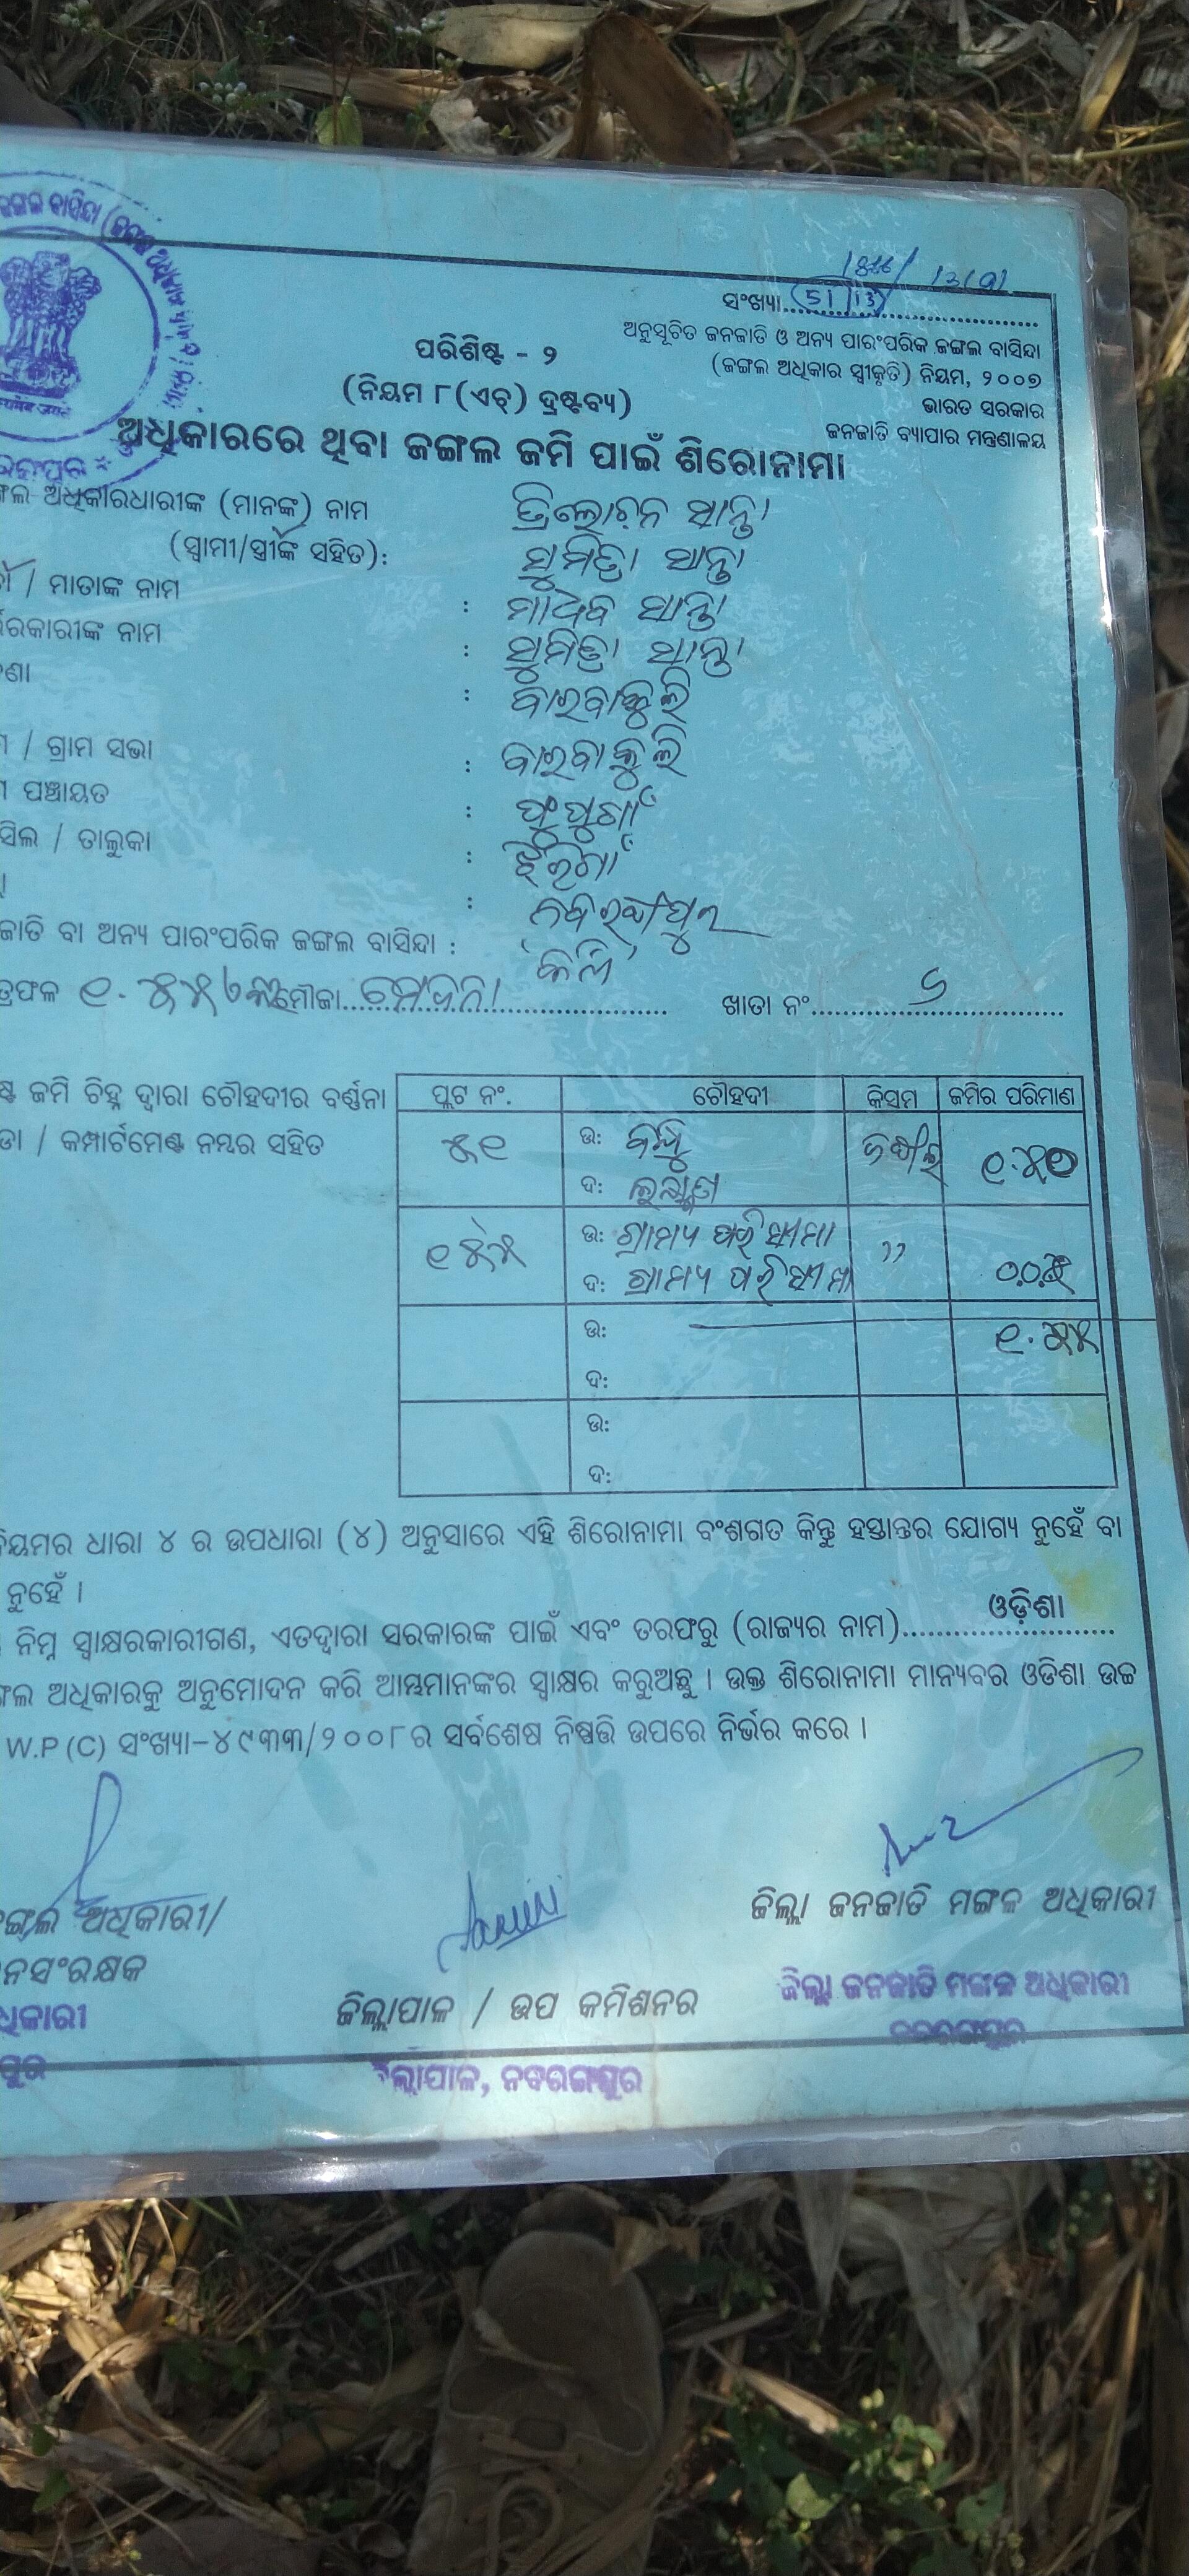 ଜଙ୍ଗଲ ବାସିନ୍ଦା (ଜଙ୍ଗଲ ଅଧିକାର
ସଂଖ୍ୟା 51/13
ଅନୁସୂଚିତ ଜନଜାତି ଓ ଅନ୍ୟ ପାରଂପରିକ ଜଙ୍ଗଲ ବାସିନ୍ଦା
(ଜଙ୍ଗଲ ଅଧିକାର ସ୍ୱୀକୃତି) ନିୟମ, ୨୦୦୭
ଭାରତ ସରକାର
ଜନଜାତି ବ୍ୟାପାର ମନ୍ତ୍ରଣାଳୟ
ପରିଶିଷ୍ଟ - ୨
(ନିୟମ ୮(ଏଚ୍) ଦ୍ରଷ୍ଟବ୍ୟ)
ଅଧିକାରରେ ଥିବା ଜଙ୍ଗଲ ଜମି ପାଇଁ ଶିରୋନାମା
ଙ୍ଗଲ ଅଧିକାରଧାରୀଙ୍କ (ମାନଙ୍କ) ନାମ ତ୍ରିଲୋଚନ ସାନ୍ତା
(ସ୍ୱାମୀ/ସ୍ତ୍ରୀଙ୍କ ସହିତ): ସୁମିତ୍ରା ସାନ୍ତା
/ ମାତାଙ୍କ ନାମ : ମାଧବ ସାନ୍ତା
ରକାରୀଙ୍କ ନାମ : ସୁମିତ୍ରା ସାନ୍ତା
ଣା :
/ ଗ୍ରାମ ସଭା : ବାଇବାକୁଲି
ପଞ୍ଚାୟତ : ଫୁପୁଗାଁ
ସିଲ / ତାଲୁକା : ଝରିଗାଁ
: ନବରଙ୍ଗପୁର
ଜାତି ବା ଅନ୍ୟ ପାରଂପରିକ ଜଙ୍ଗଲ ବାସିନ୍ଦା :
ତ୍ରଫଳ ୧.୫୫ ମୌଜା ଖାତା ନଂ ୬
ଷ୍ଟ ଜମି ଚିହ୍ନ ଦ୍ୱାରା ଚୌହଦୀର ବର୍ଣ୍ଣନା
ଡା / କମ୍ପାର୍ଟମେଣ୍ଟ ନମ୍ବର ସହିତ
ପ୍ଲଟ ନଂ. ଚୌହଦୀ କିସମ ଜମିର ପରିମାଣ
୫୧ ଉ: ବନ୍ଧୁ ଜଙ୍ଗଲ ୧.୫୦
ଦ:
୧୫୫ ଉ: ଗ୍ରାମ୍ୟ ପରିସୀମା " ୦.୦୫
ଦ: ଗ୍ରାମ୍ୟ ପରିସୀମା
ଉ: ୧.୫୫
ଦ:
ଉ:
ଦ:
ନିୟମର ଧାରା ୪ ର ଉପଧାରା (୪) ଅନୁସାରେ ଏହି ଶିରୋନାମା ବଂଶଗତ କିନ୍ତୁ ହସ୍ତାନ୍ତର ଯୋଗ୍ୟ ନୁହେଁ ବା
ନୁହେଁ ।
ନିମ୍ନ ସ୍ୱାକ୍ଷରକାରୀଗଣ, ଏତଦ୍ୱାରା ସରକାରଙ୍କ ପାଇଁ ଏବଂ ତରଫରୁ (ରାଜ୍ୟର ନାମ) ଓଡ଼ିଶା
ଙ୍ଗଲ ଅଧିକାରକୁ ଅନୁମୋଦନ କରି ଆମ୍ଭମାନଙ୍କର ସ୍ୱାକ୍ଷର କରୁଅଛୁ । ଉକ୍ତ ଶିରୋନାମା ମାନ୍ୟବର ଓଡିଶା ଉଚ୍ଚ
W.P (C) ସଂଖ୍ୟା-୪୯୩୩/୨୦୦୮ ର ସର୍ବଶେଷ ନିଷ୍ପତ୍ତି ଉପରେ ନିର୍ଭର କରେ ।
ଙ୍ଗଲ ଅଧିକାରୀ/
ନସଂରକ୍ଷକ
ଧିକାରୀ
ପୁର
ଜିଲ୍ଲାପାଳ / ଉପ କମିଶନର
ଜିଲ୍ଲାପାଳ, ନବରଙ୍ଗପୁର
ଜିଲ୍ଲା ଜନଜାତି ମଙ୍ଗଳ ଅଧିକାରୀ
ଜିଲ୍ଲା ଜନଜାତି ମଙ୍ଗଳ ଅଧିକାରୀ
ନବରଙ୍ଗପୁର